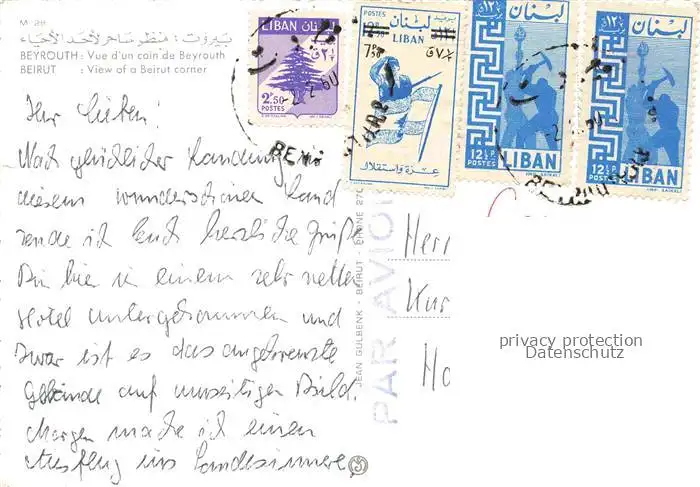 M 28
بيروت : منظر ساحر لأحد الأحياء
BEYROUTH : Vue d'un coin de Beyrouth
BEIRUT : View of a Beirut corner
Ihr Lieben!
Nach glücklicher Landung in
diesem wunderschönen Land
sende ich Euch herzliche Grüße
Bin hier in einem sehr netten
Hotel untergekommen und
zwar ist es das angekreuzte
Gebäude auf umseitigen Bild.
Morgen mache ich einen
Ausflug ins Landesinnere.
JEAN GULBENK - BEIRUT - PHONE 270
PAR AVION
لبنان
LIBAN
2.50
POSTES
POSTES
لبنان
LIBAN
7P50
ق٧½
عزة واستقلال
لبنان
12½P
POSTES
LIBAN
لبنان
12½P
POSTES
LIBAN
Herr
Kur
Ha
privacy protection
Datenschutz